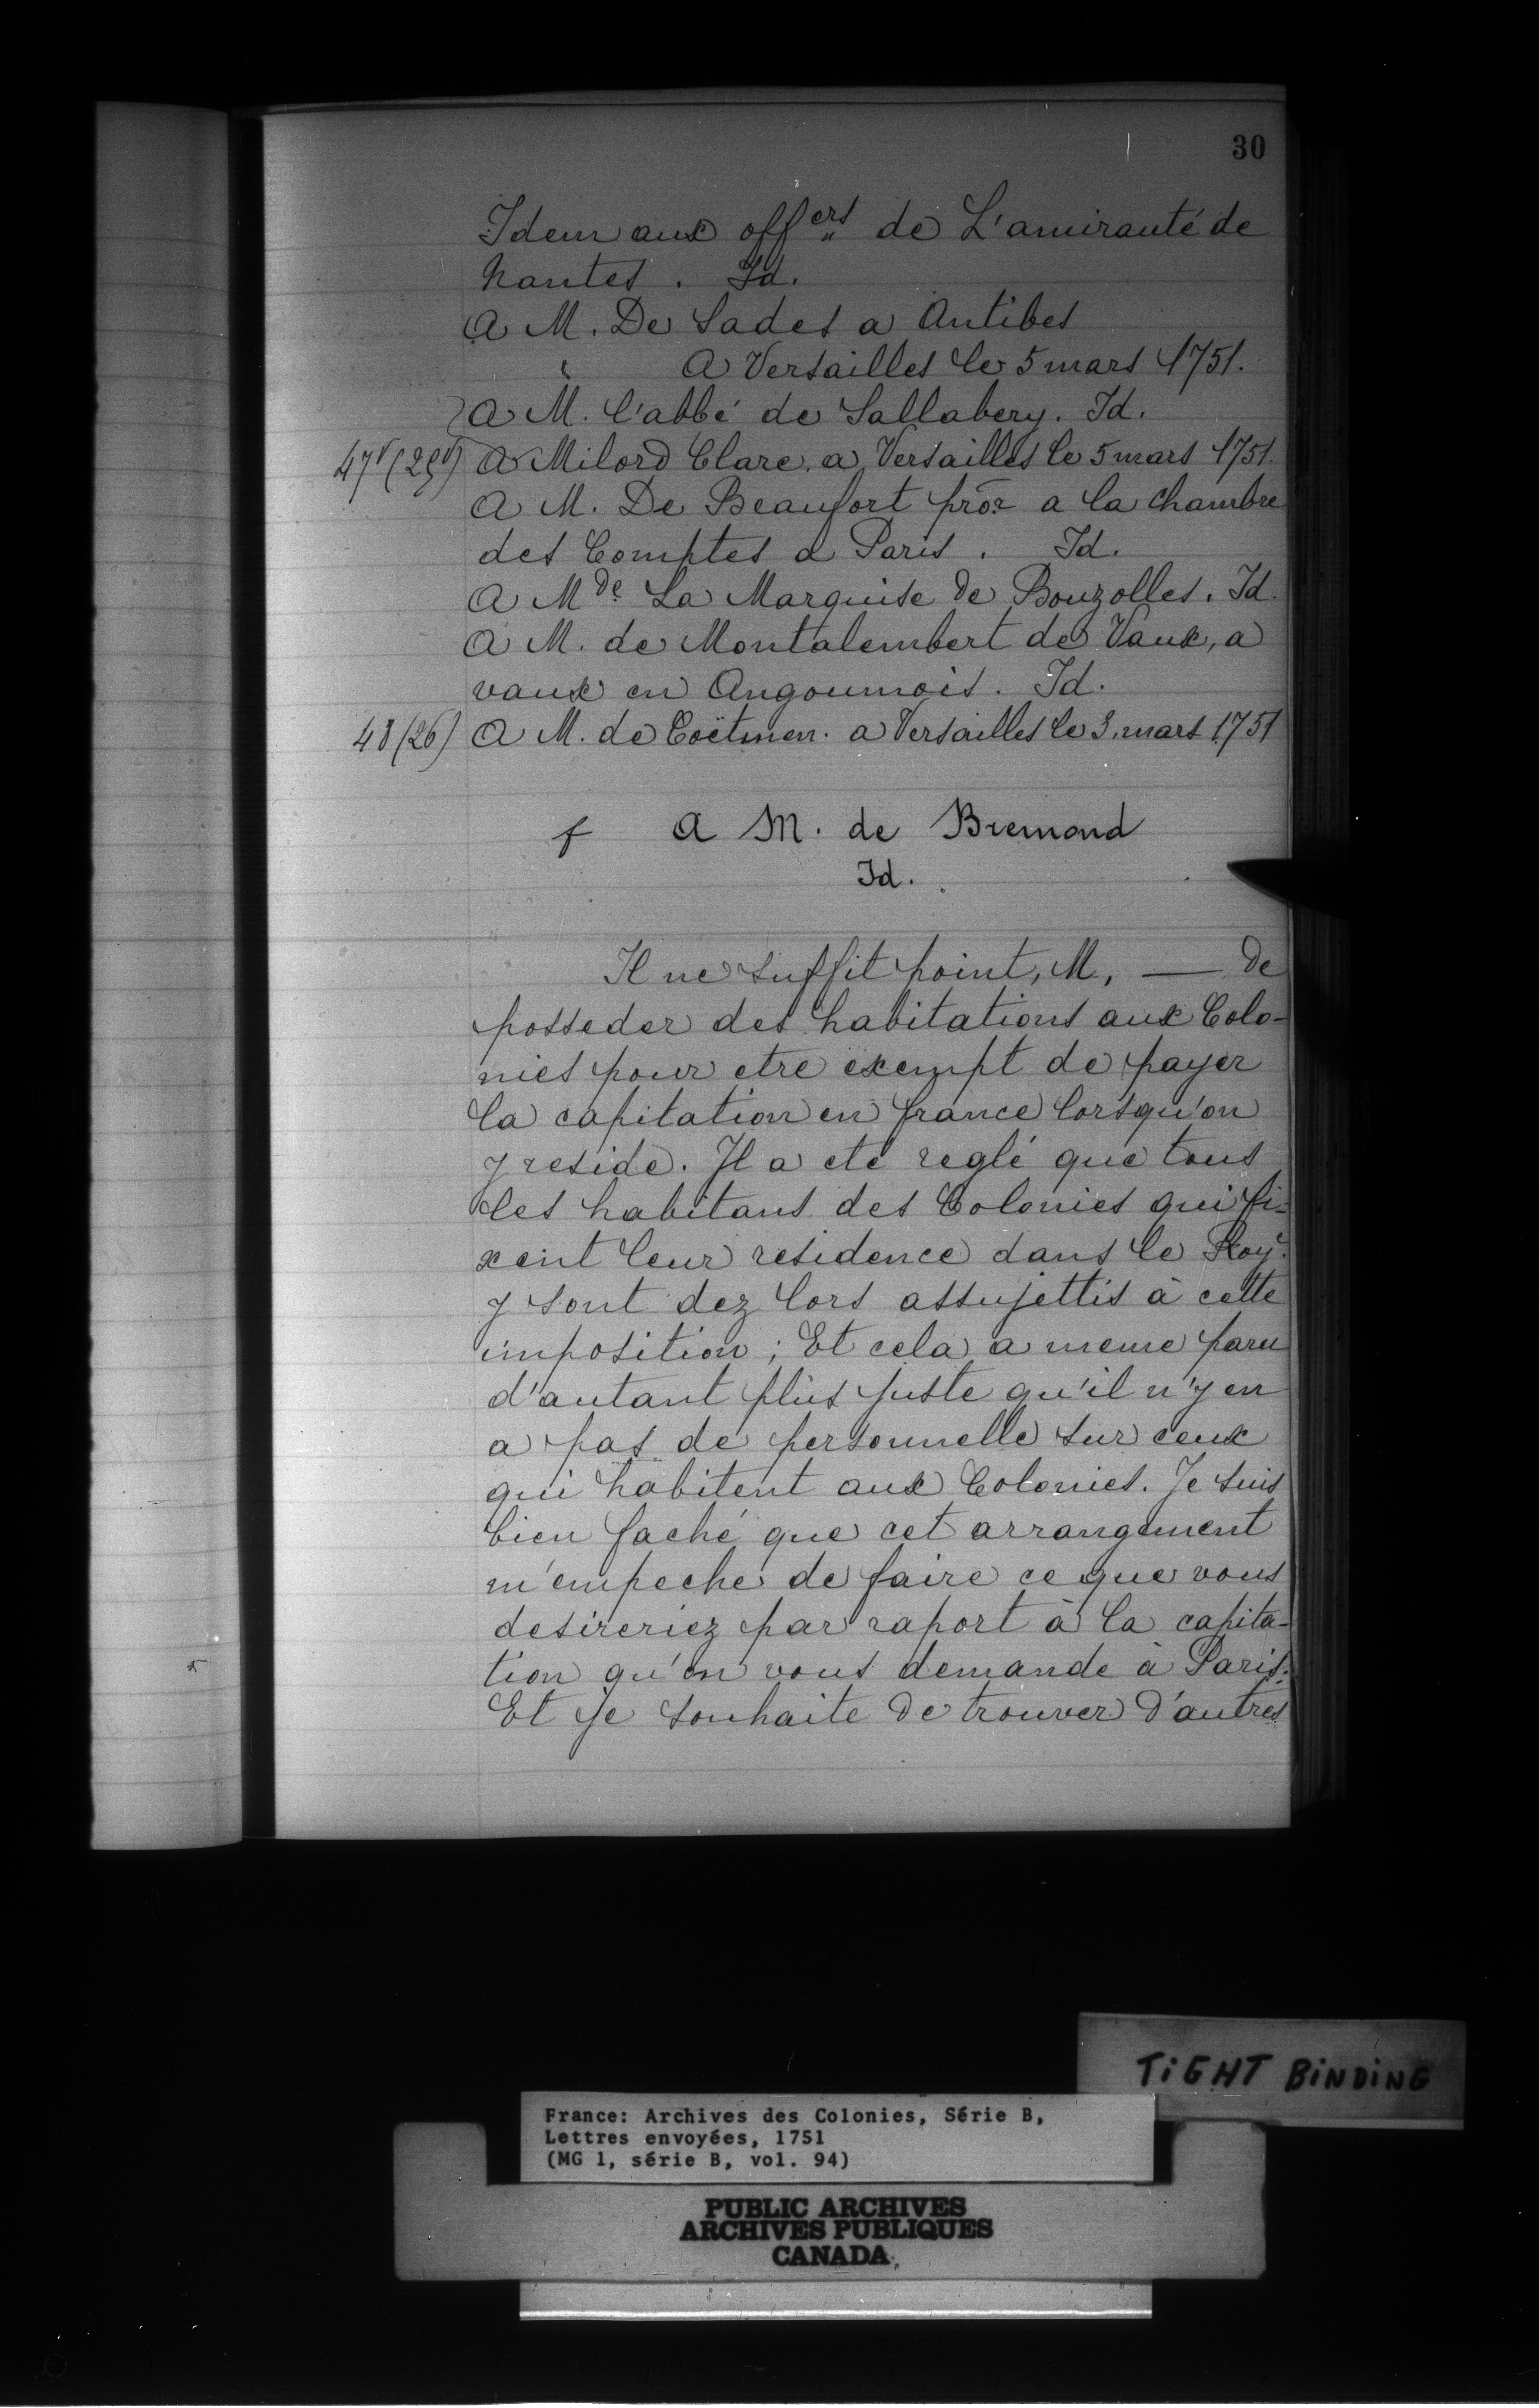 30
Idem aux offers de L'amirauté de
nantes. Id.
A M. De Sades a Antibes
A Versailles le 5 mars 1751.
A M. l'abbé de Sallabery. Id.
47v (25v) A Milord Clare, a Versailles le 5 mars 1751.
A M. De Beaufort prõr a la chambre
des Comptes a Paris. Id.
A Mde La Marquise de Bouzolles. Id.
A M. de Montalembert de Vaux, a
vaux en Angoumois. Id.
48 (26) A M. de Coëtmen. a Versailles le 3. mars 1751
f A M. de Bremond
Id.
Il ne suffit point, M, — de
posseder des habitations aux Colo-
nies pour etre exempt de payer
la capitation en france lorsqu'on
y reside. Il a eté reglé que tous
les habitans des Colonies qui fi-
xent leur residence dans le Roye
y sont dez lors assujettis à cette
imposition; Et cela a meme paru
d'autant plus juste qu'il n'y en
a pas de personnelle sur ceux
qui habitent aux Colonies. Je suis
bien faché que cet arrangement
m'empeche de faire ce que vous
desireriez par raport à la capita-
tion qu'on vous demande à Paris.
Et je souhaite de trouver d'autres
TIGHT BINDING
France: Archives des Colonies, Série B,
Lettres envoyées, 1751
(MG 1, série B, vol. 94)
PUBLIC ARCHIVES
ARCHIVES PUBLIQUES
CANADA